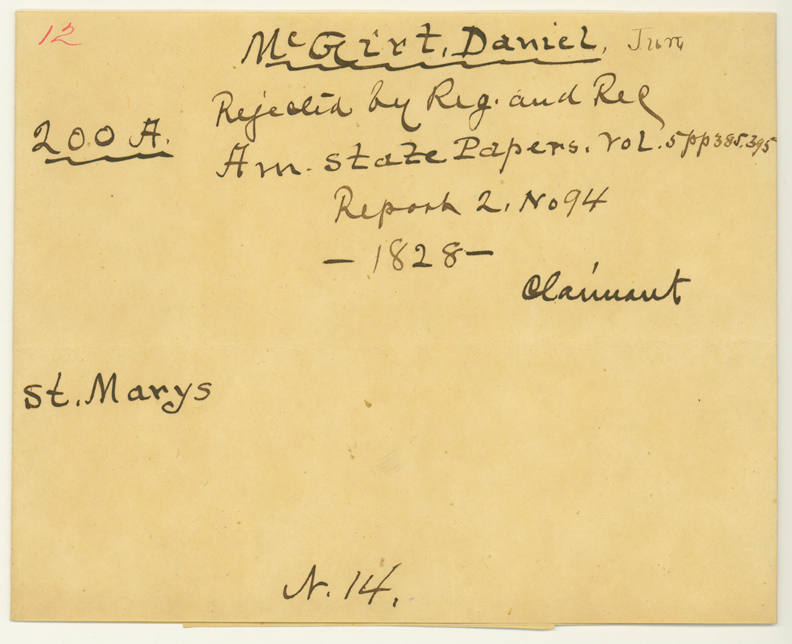 12
McGirt, Daniel, Junr
Rejected by Reg. and Rec
200 A.
Am. State Papers. Vol. 5 pp 385.395
Report 2, No 94
— 1828 —
Claimant
St. Marys
N. 14.